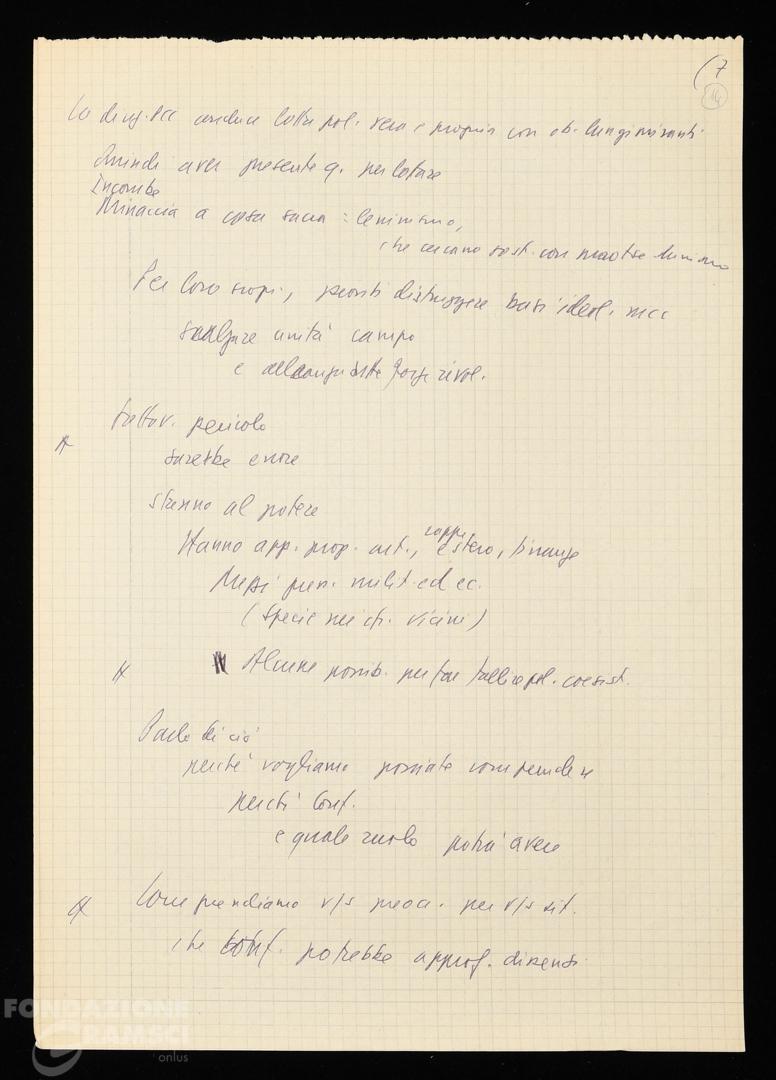 (7
14
La dirig. PCC conduce lotta pol. vera e propria con ob. lungimiranti.
Quindi aver presente q. per lottare
Incombe
Minaccia a cosa sacra: leninismo,
che cercano sost. con maotsetunismo
Per loro scopi, pronti distruggere basi ideol. mcc
unità campo
e delle conquiste forze rivol.
pericolo
sarebbe errore
stanno al potere
Hanno app. prop. est., rapp. estero, finanze
Mezzi pres. milit. ed ec.
(specie nei p. vicini)
Alcune possib. per far fallire pol. coesist.
Parlo di ciò
perché vogliamo possiate comprendere
perché Conf.
e quale ruolo potrà avere
Comprendiamo v/s preocc. per v/s sit.
che Conf. potrebbe approf. dissensi
FONDAZIONE
GRAMSCI
onlus